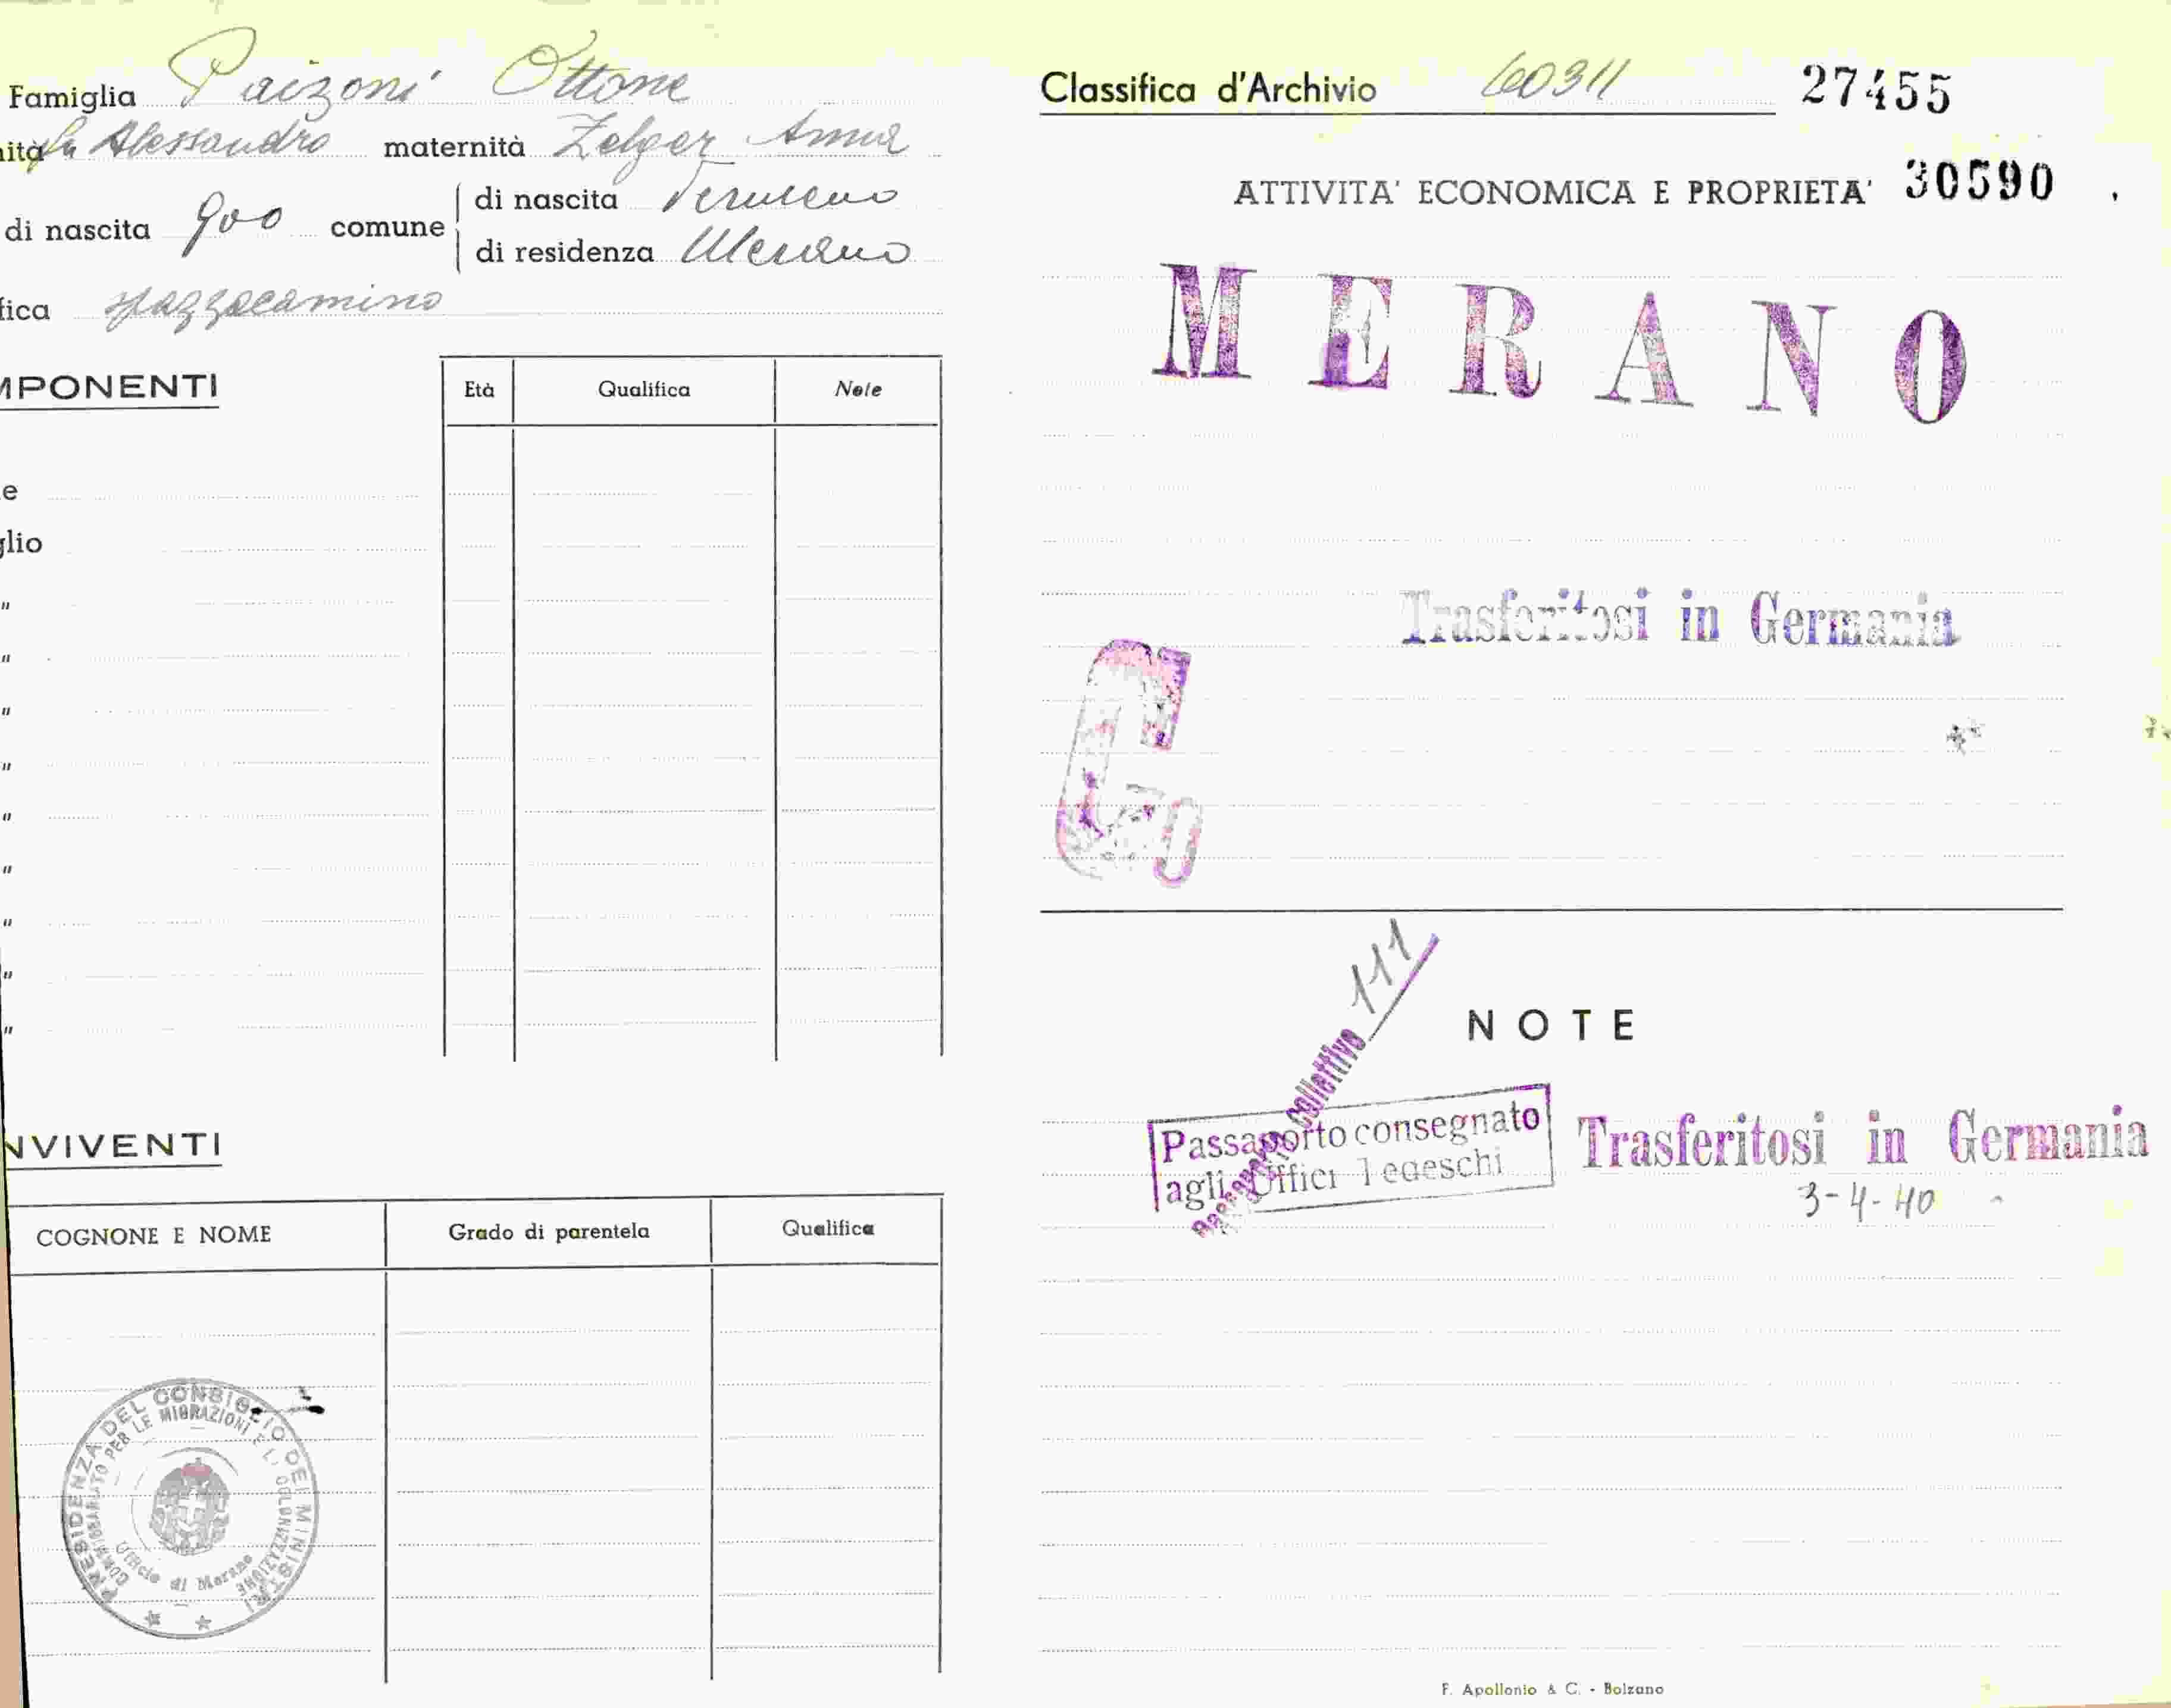 Famiglia Paizoni Ottone
ità fu Alessandro maternità Zelger Anna
di nascita 900 comune di nascita
di residenza Merano
fica spazzacamino
MPONENTI
Età Qualifica Note
e
glio
"
"
"
"
"
"
"
"
"
NVIVENTI
COGNONE E NOME Grado di parentela Qualifica
PRESIDENZA DEL CONSIGLIO DEI MINISTRI
COMMISSARIATO PER LE MIGRAZIONI E L. COLONIZZAZIONE
Ufficio di Merano
Classifica d'Archivio 60311 27455
ATTIVITA' ECONOMICA E PROPRIETA' 30590
MERANO
Trasferitosi in Germania
G
NOTE
Passaporto collettivo 111
Passaporto consegnato
agli Uffici Tedeschi
Trasferitosi in Germania
3-4-40
F. Apollonio & C. - Bolzano